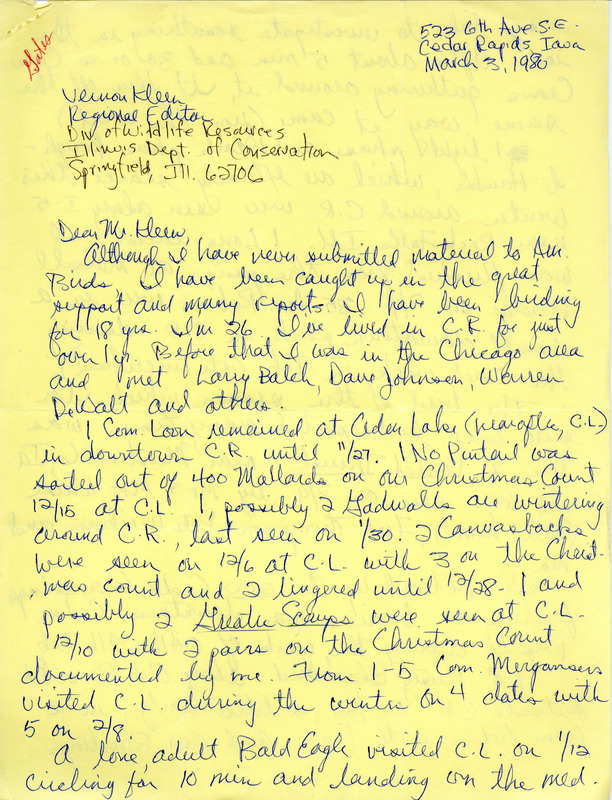 Gates
523 6th Ave S.E.
Cedar Rapids, Iowa
March 3, 1980
Vernon Kleen
Regional Editor
Div. of Wildlife Resources
Illinois Dept. of Conservation
Springfield, Ill. 62706
Dear Mr. Kleen,
Although I have never submitted material to Am.
Birds, I have been caught up in the great
support and many reports. I have been birding
for 18 yrs. I'm 26. I've lived in C.R. for just
over 1 yr. Before that I was in the Chicago area
and met Larry Balch, Dave Johnson, Warren
DeWalt and others.
1 Com. Loon remained at Cedar Lake (hereafter, C.L.)
in downtown C.R. until 11/27. 1 No Pintail was
sorted out of 400 Mallards on our Christmas Count
12/15 at C.L. 1, possibly 2 Gadwalls are wintering
around C.R., last seen on 1/30. 2 Canvasbacks
were seen on 12/6 at C.L. with 3 on the Christ-
mas count and 2 lingered until 12/28. 1 and
possibly 2 Greater Scaups were seen at C.L.
12/10 with 2 pairs on the Christmas Count
documented by me. From 1-5 Com. Mergansers
visited C.L. during the winter on 4 dates with
5 on 2/8.
A lone, adult Bald Eagle visited C.L. on 1/12
circling for 10 min and landing on the med.